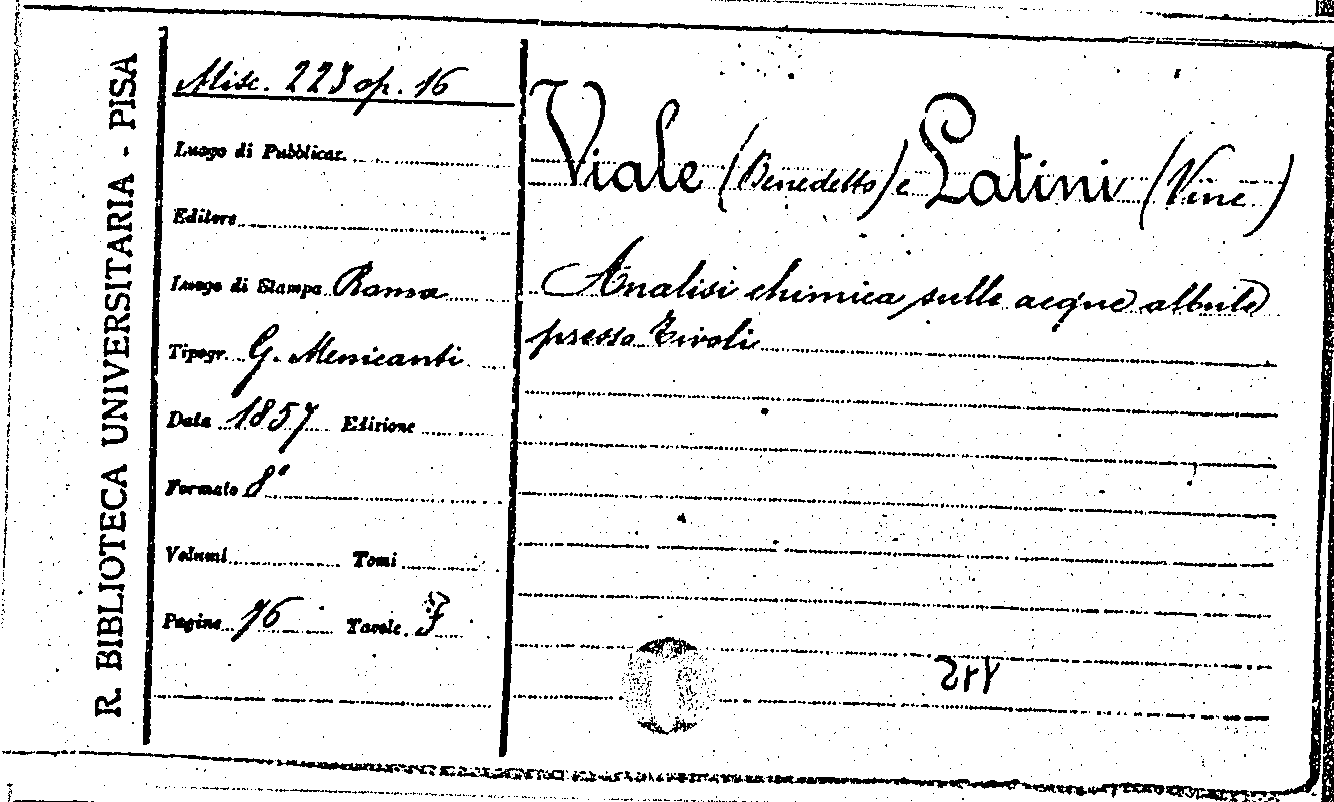 R. BIBLIOTECA UNIVERSITARIA - PISA
Misc. 223 op. 16
Luogo di Pubblicaz.
Editore
Luogo di Stampa Roma
Tipogr. G. Menicanti
Data 1857 Edizione
Formato 8°
Volumi Tomi
Pagine 76 Tavole
Viale (Benedetto) e Latini (Vinc)
Analisi chimica sulle acque albule
presso Tivoli